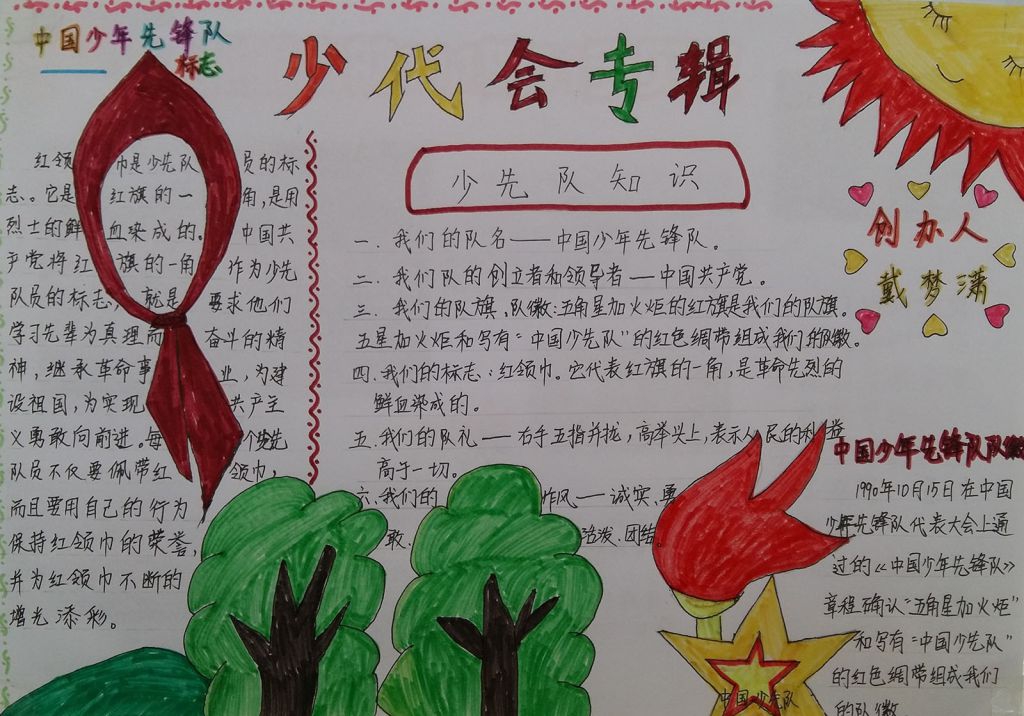 中国少年先锋队
标志
少代会专辑
红领巾是少先队员的标
志。它是红旗的一角,是用
烈士的鲜血染成的。中国共
产党将红旗的一角作为少先
队员的标志,就是要求他们
学习先辈为真理而奋斗的精
神,继承革命事业,为建
设祖国,为实现共产主
义勇敢向前进。每个少先
队员不仅要佩带红领巾,
而且要用自己的行为
保持红领巾的荣誉,
并为红领巾不断的
增光添彩。
少先队知识
一、我们的队名——中国少年先锋队。
二、我们队的创立者和领导者—中国共产党。
三、我们的队旗、队徽:五角星加火炬的红旗是我们的队旗。
五星加火炬和写有“中国少先队”的红色绸带组成我们的队徽。
四、我们的标志:红领巾。它代表红旗的一角,是革命先烈的
鲜血染成的。
五、我们的队礼——右手五指并拢,高举头上,表示人民的利益
高于一切。
六、我们的作风——诚实、勇
敢、活泼、团结
创办人
戴梦潇
中国少年先锋队队徽
1990年10月15日在中国
少年先锋队代表大会上通
过的《中国少年先锋队》
章程确认“五角星加火炬”
和写有“中国少先队”
的红色绸带组成我们
的队徽
中国少先队